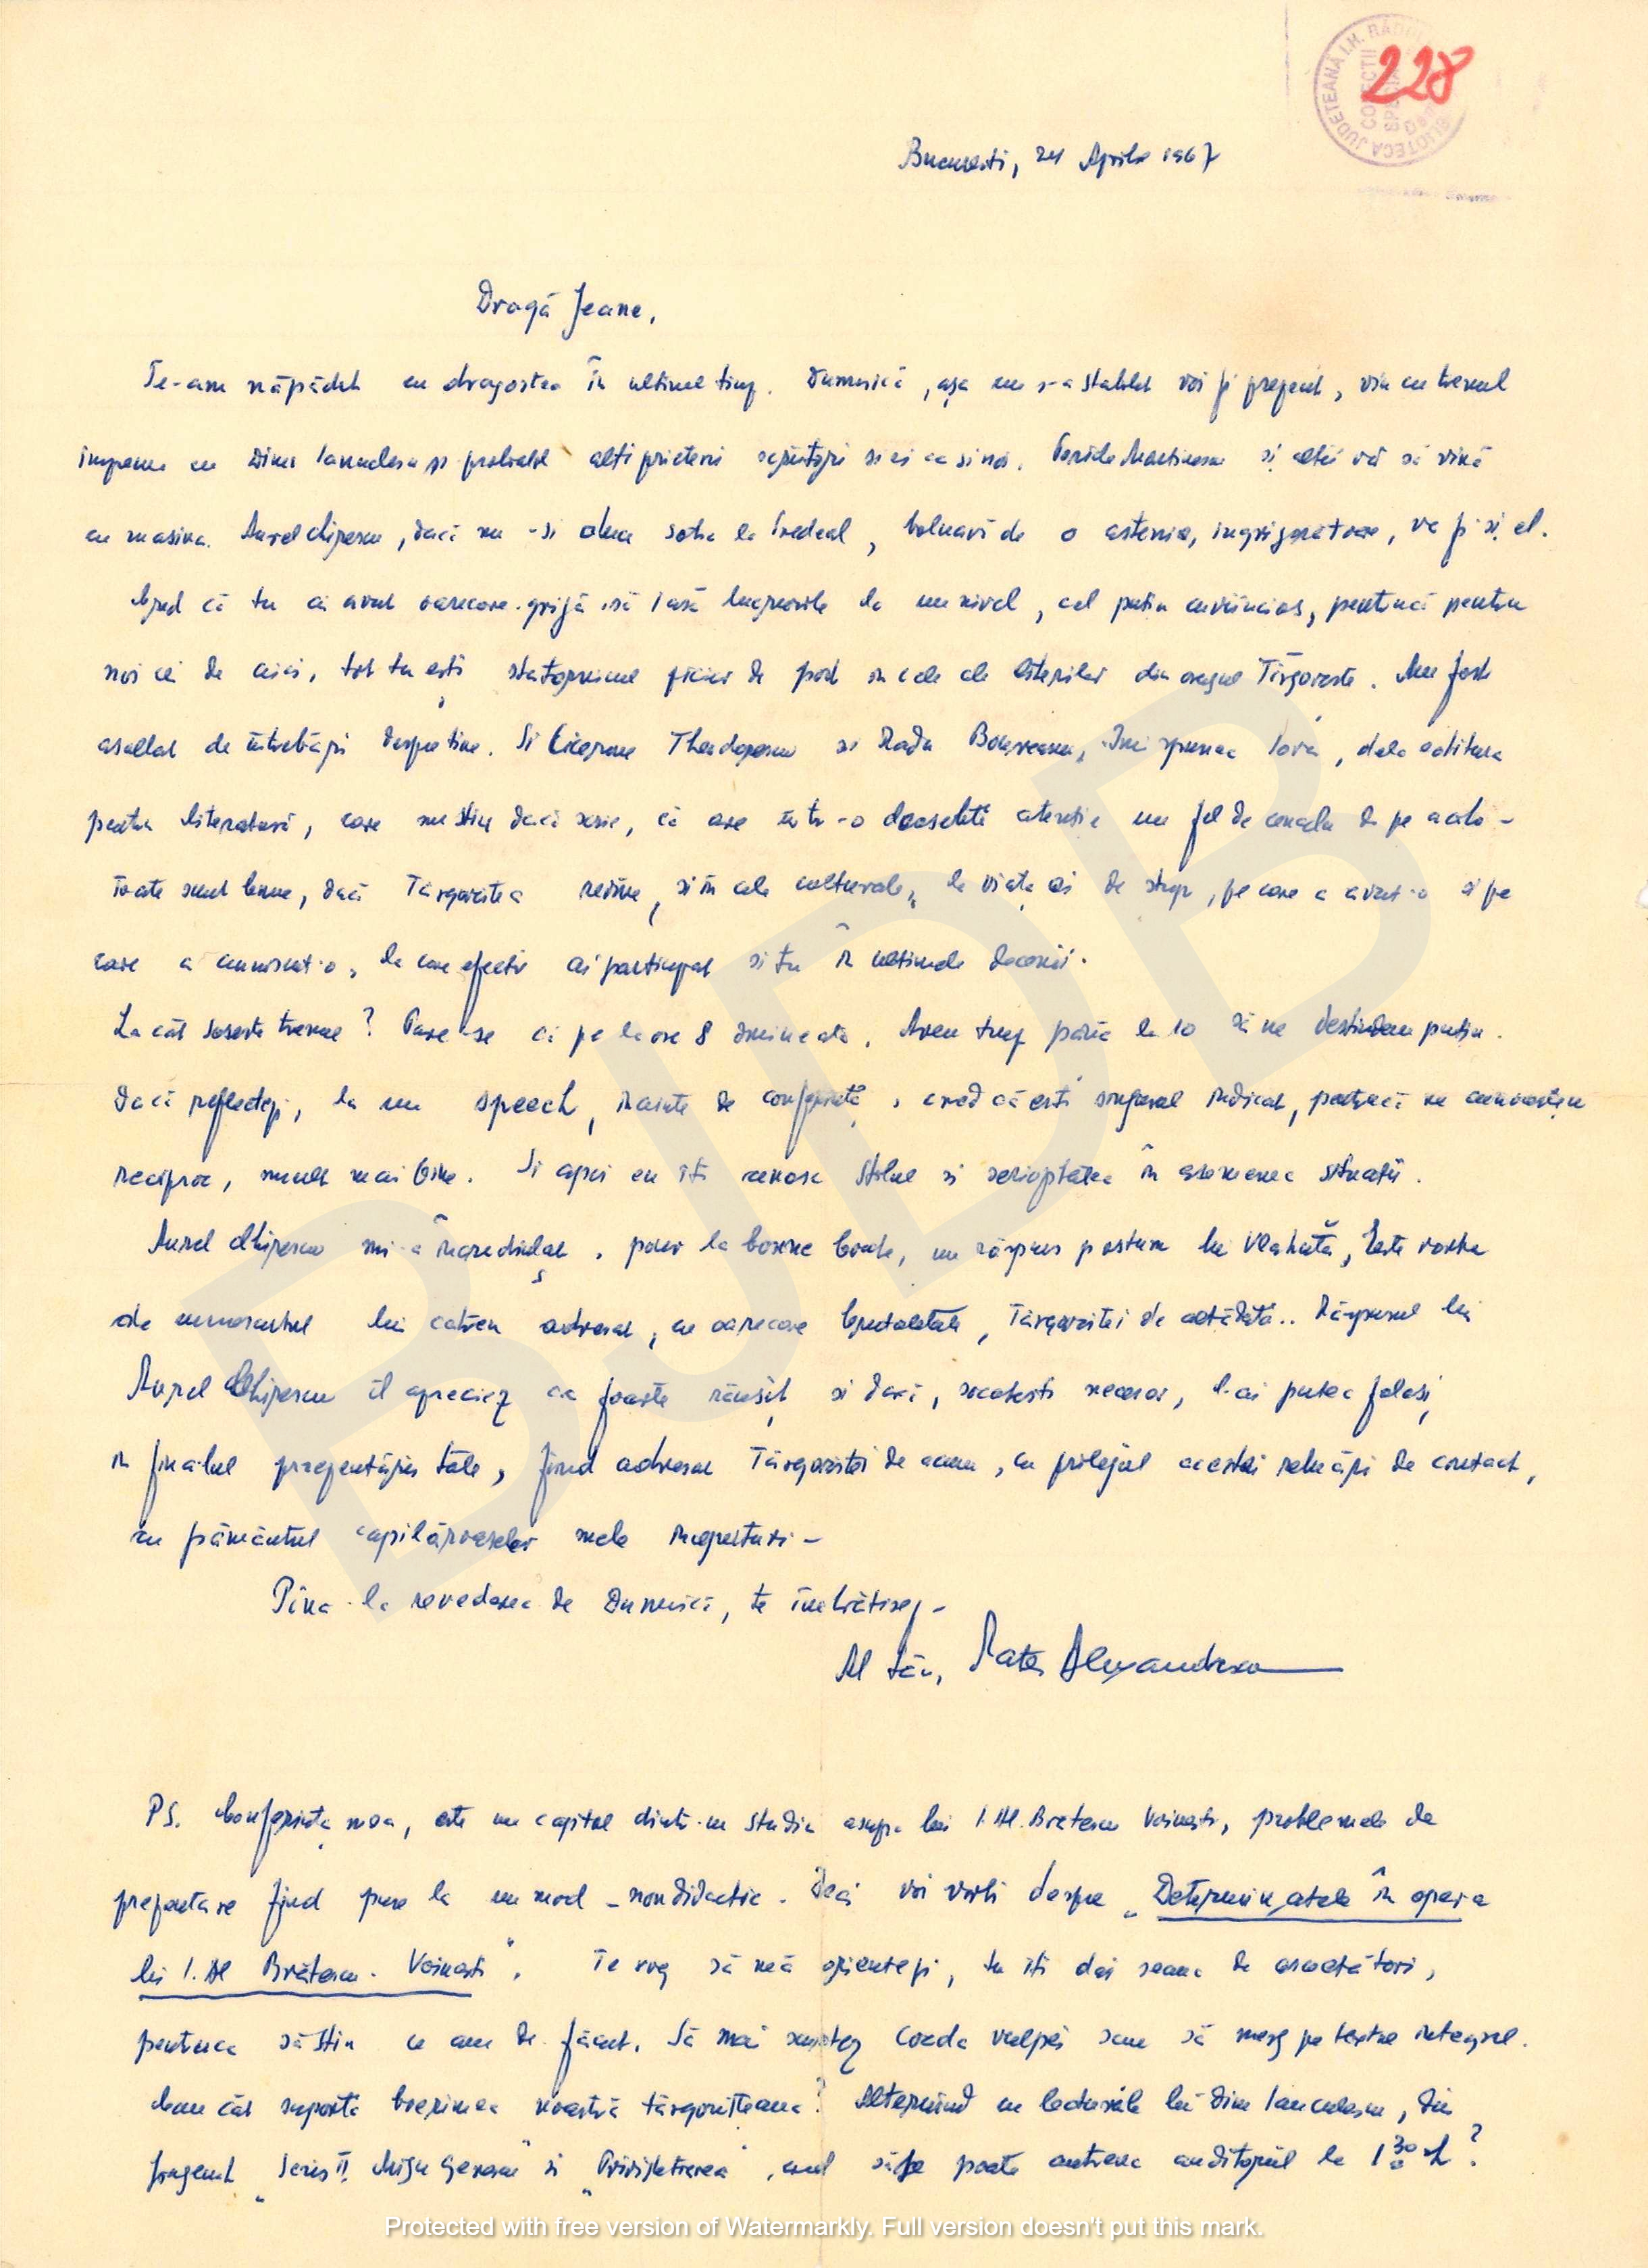 228
BIBLIOTECA JUDEȚEANĂ I.H. RĂDU
COLECȚII
SPECIALE
București, 24 Aprilie 1967
Dragă Jeane,
Te-am năpădit cu dragostea în ultimul timp. Dumnică, așa cum s-a stabilit voi fi prezent, vin cu trenul
împreună cu Dinu Ianculescu și probabil alți prieteni scriitori și ei ca și noi. și alții vor să vină
cu mașina. Aurel Chirescu, dacă nu-și duce soția la Predeal, bolnavă de o astenie, îngrijorătoare, va fi și el.
Cred că tu ai avut oarecare grijă să iasă lucrurile la un nivel, cel puțin cuviincios, pentrucă pentru
noi cei de aici, tot tu ești statornicul picior de pod în cele ale literilor din orașul Tîrgoviște. Am fost
asaltat de întrebări despre tine. Si Cicerone Theodorescu si Radu Boureanu, Imi spunea Iova, dela editura
pentru literatură, care nu știu dacă scrie, că are într-o deosebită atenție un fel de cenaclu de pe acolo -
Toate sunt bune, dacă Târgoviștea revine, și în cele culturale, la viața ei de stup, pe care a avut-o și pe
care a cunoscut-o, la care efectiv ai participat si tu în ultimele decenii.
La cât sosește trenul? Pare-se că pe la ore 8 dimineața. Avem timp până la 10 să ne destindem puțin.
Dacă reflectezi, la un speech, înainte de conferință, cred că ești singurul indicat, pentrucă ne cunoaștem
reciproc, mult mai bine. Si apoi eu îți cunosc stilul si seriozitatea în asemenea situații.
Aurel Chirescu mi-a încredințat, pour la bonne bouche, un răspuns postum lui Vlahuță, Este vorba
de cunoscutul lui catren adresat, cu oarecare brutalitate, Târgoviștei de altădată.. Răspunsul lui
Aurel Chirescu îl apreciez ca foarte reușit și dacă, socotești necesar, l-ai putea folosi,
în finalul prezentării tale, fiind adresat Târgoviștei de acum, cu prilejul acestei reluări de contact,
cu pământul mele
Pîna la revederea de Dumnică, te îmbrățișez -
Al tău, Alexandrescu
PS. Conferința mea, este un capitol dintr-un studiu asupra lui I. Al. Brătescu Voinești, problemele de
prezentare fiind puse la un mod - nondidactic. Deci voi vorbi despre „Determinatele în opera
lui I. Al Brătescu-Voinești". Te rog să mă orientezi, tu îți dai seama de ascultători,
pentruca să știu ce am de făcut. Să mai scurtez coada vulpii sau să merg pe textul integral.
Cam cât suportă boerimea noastră târgovișteana? Alternând cu lecturile lui Dinu Ianculescu, din
fragment și „Privighetoarea", cred să se poate antrena auditoriul la 1 30 h?
BJDB
Protected with free version of Watermarkly. Full version doesn't put this mark.